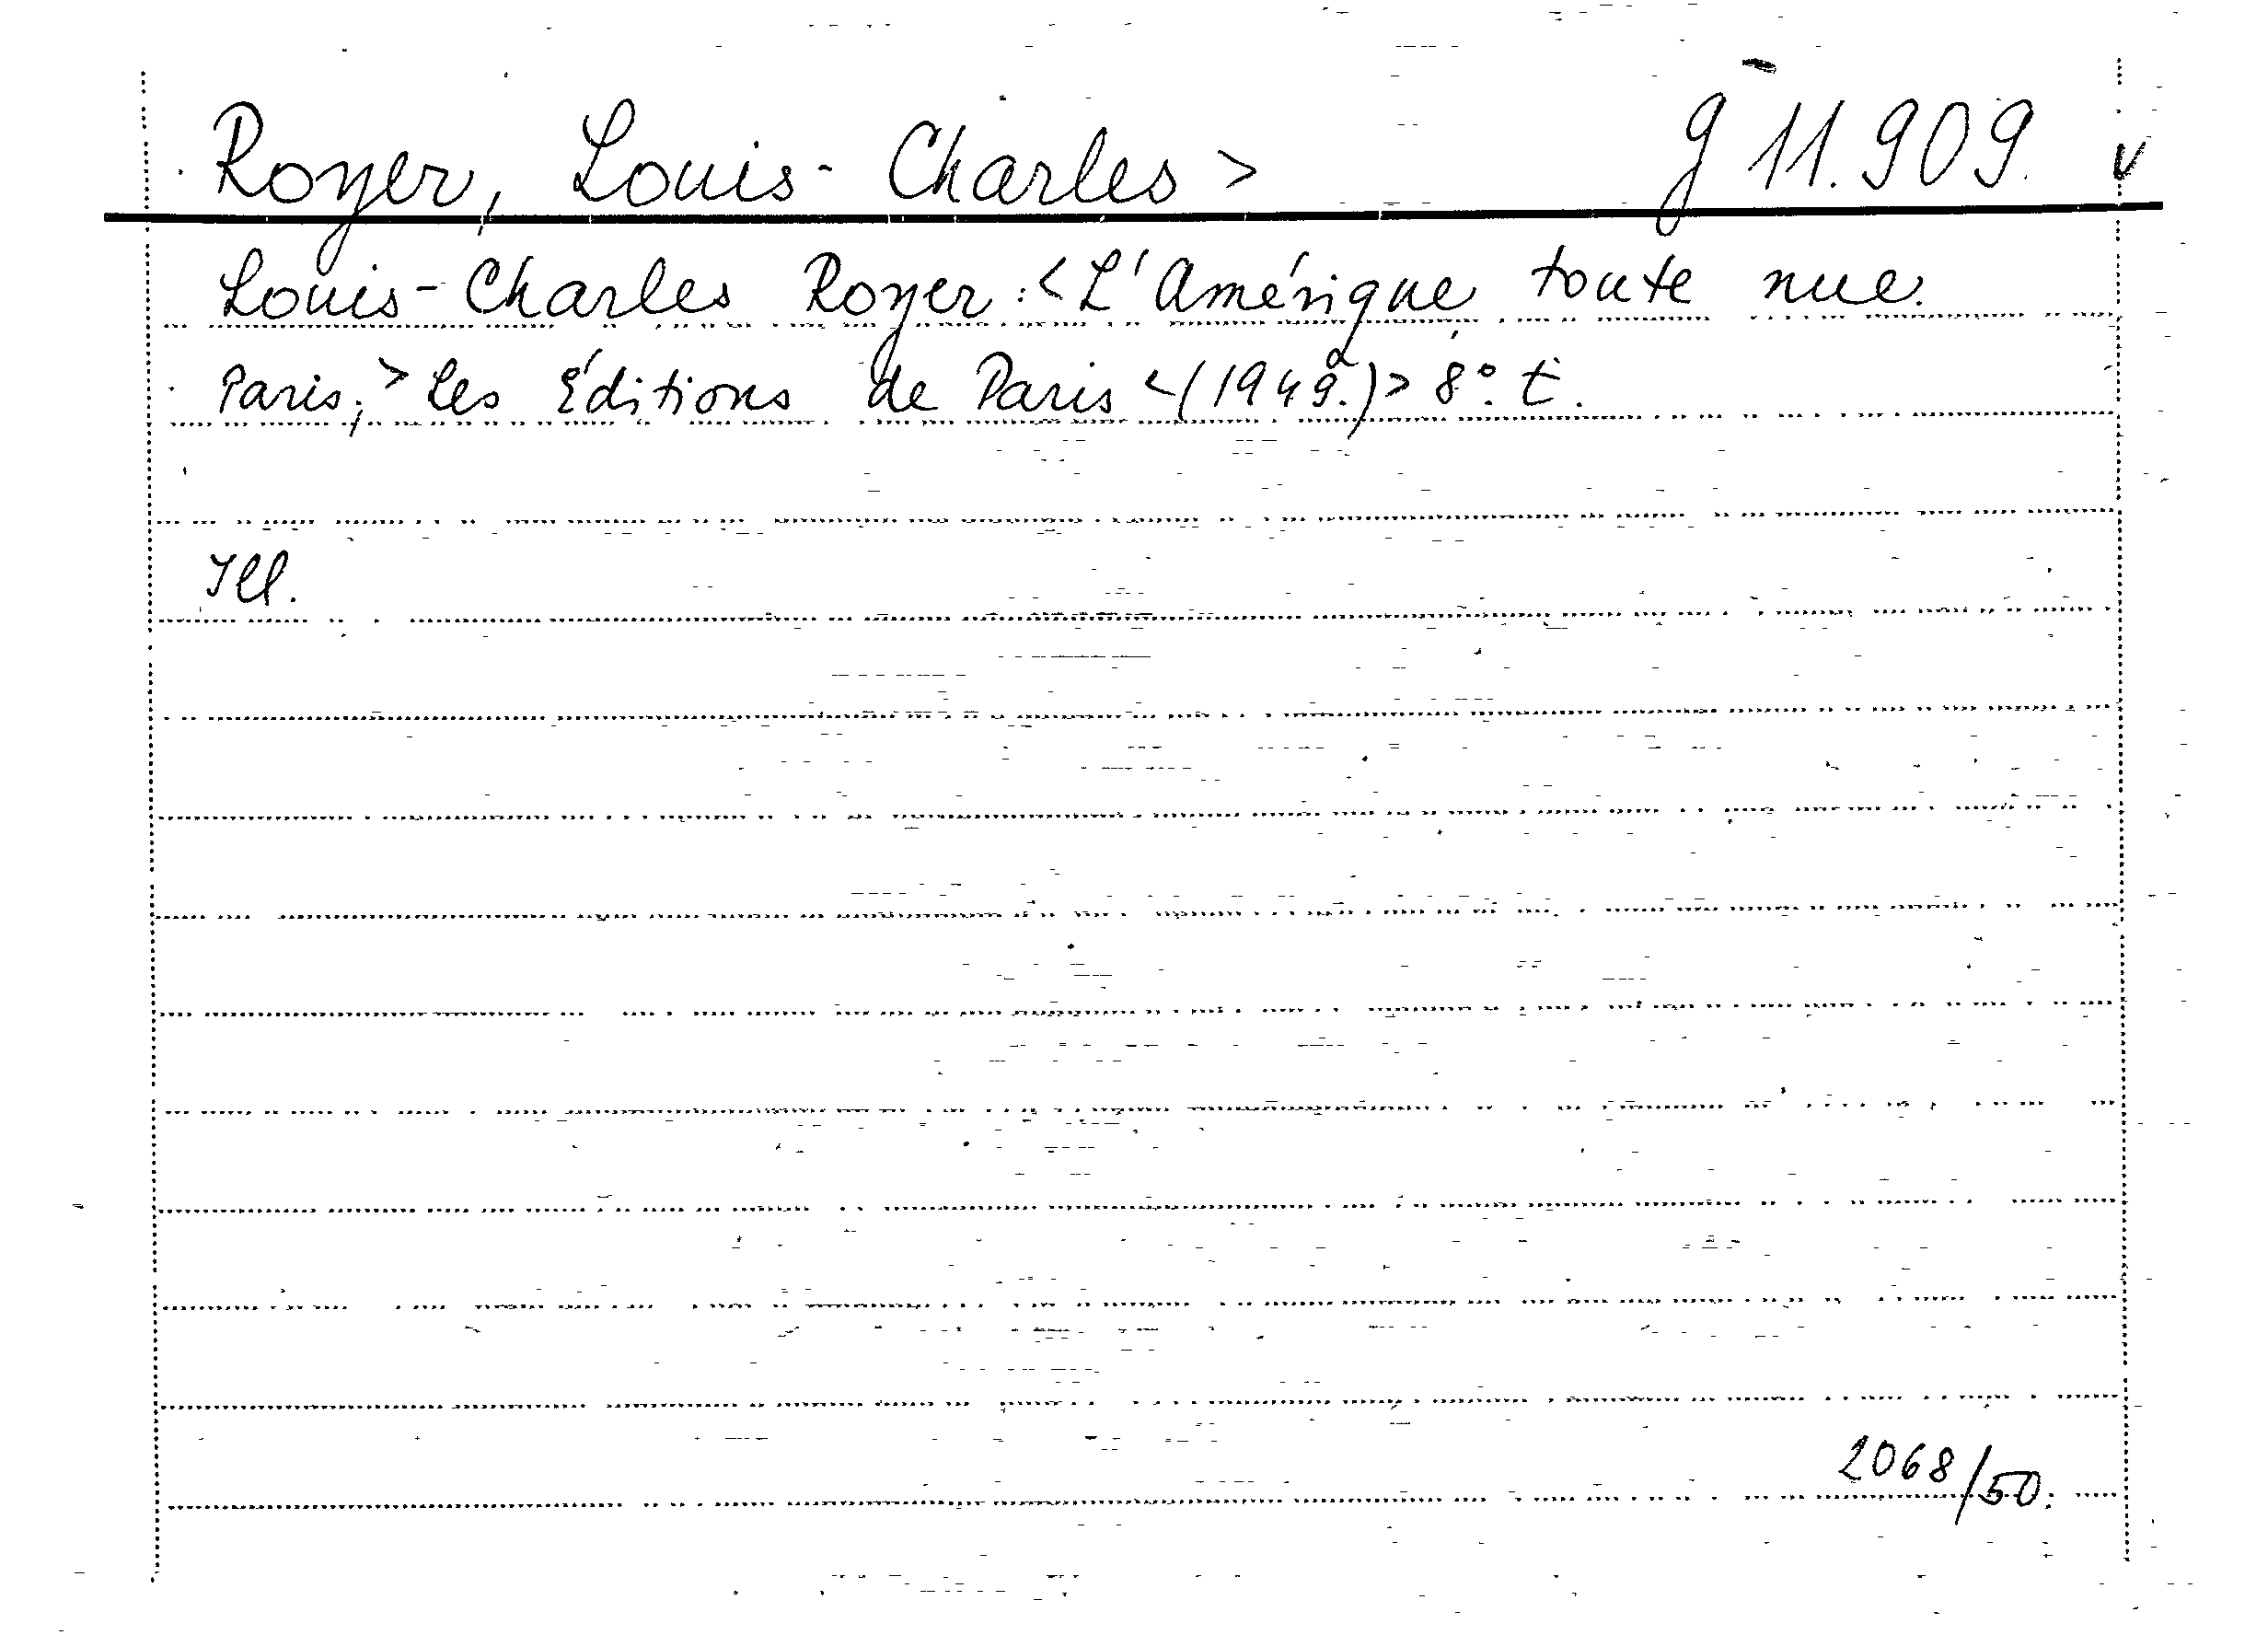 Royer, Louis-Charles > g 11.909. v
Louis-Charles Royer: <L'Amérique toute nue.
Paris, > Les Éditions de Paris <(1949.)> 8°. t.
Ill.
2068/50.